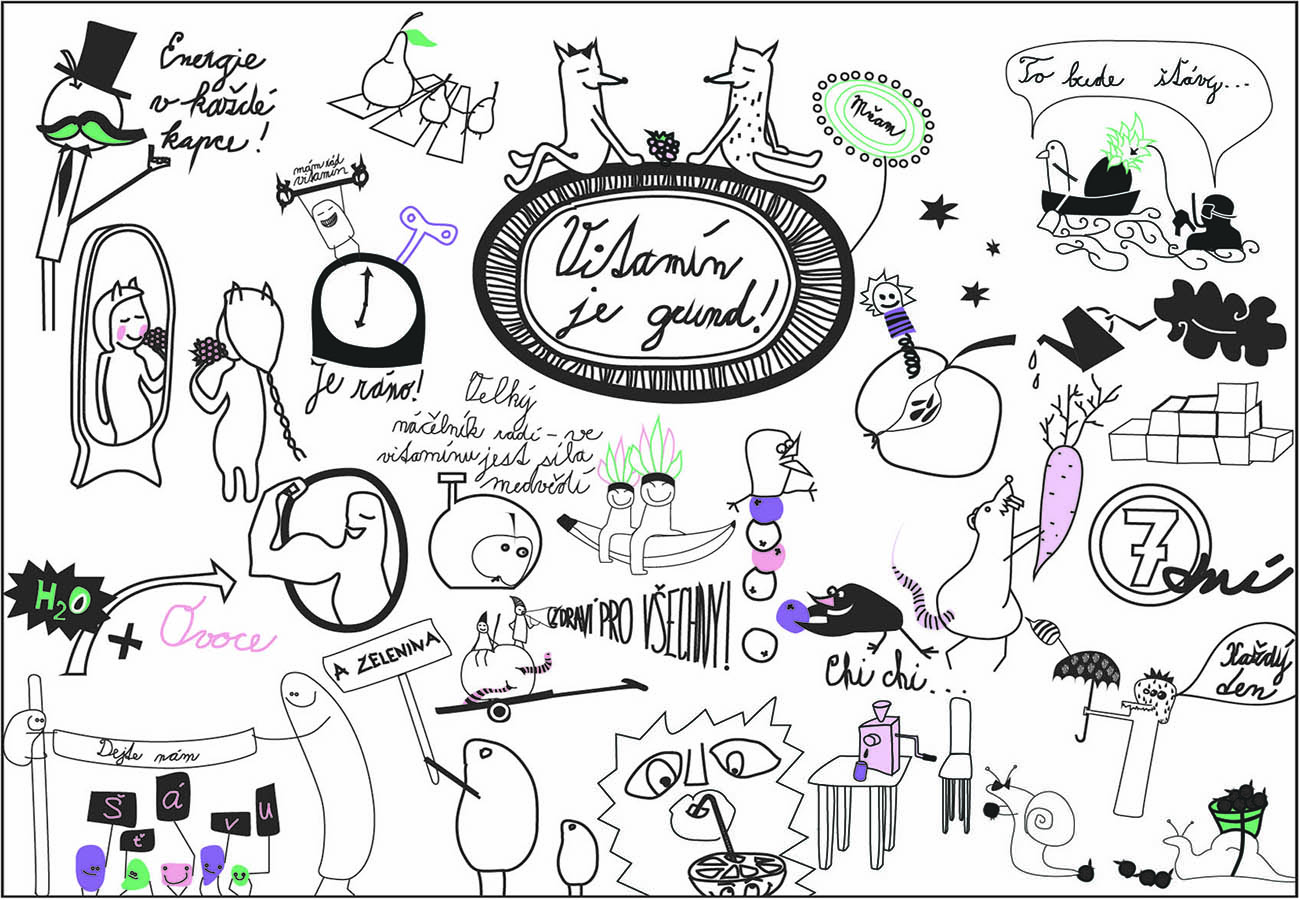 Energie
v každé
kapce!
mám rád
vitamín
Mňam
To bude šťávy...
Vitamín
je grund!
Je ráno!
Velký
náčelník radí - ve
vitamínu jest síla
medvědí
7
dní
H2O
+
Ovoce
ZDRAVÍ PRO VŠECHNY!
A ZELENINA
Chi chi...
Každý
den
Dejte nám
Š ť á v u